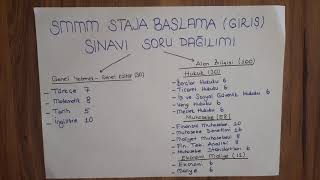 SMMM STAJA BAŞLAMA (GİRİŞ)
SINAVI SORU DAĞILIMI
Genel Yetenek - Genel Kültür (30)
Türkçe 7
Matematik 8
Tarih 5
İngilizce 10
Alan Bilgisi (100)
Hukuk (30)
Borçlar Hukuku 6
Ticaret Hukuku 6
İş ve Sosyal Güvenlik Hukuku 6
Vergi Hukuku 6
Meslek Hukuku 6
Muhasebe (58)
Finansal Muhasebe 20
Muhasebe Denetimi 16
Maliyet Muhasebesi 8
Fin. Tab. Analizi 8
Muhasebe Standartları 6
Ekonomi Maliye (12)
Ekonomi 6
Maliye 6